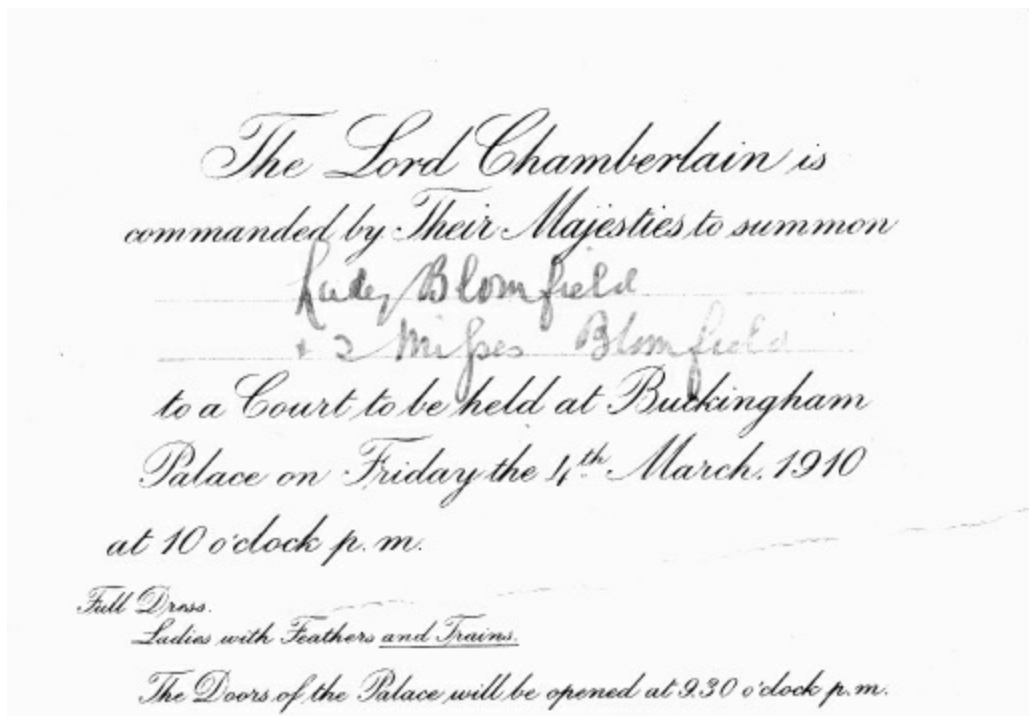 The Lord Chamberlain is
commanded by Their Majesties to summon
Lady Blomfield
+ 2 Misses Blomfield
to a Court to be held at Buckingham
Palace on Friday the 4th March. 1910
at 10 o'clock p.m.
Full Dress.
Ladies with Feathers and Trains.
The Doors of the Palace will be opened at 9.30 o'clock p.m.